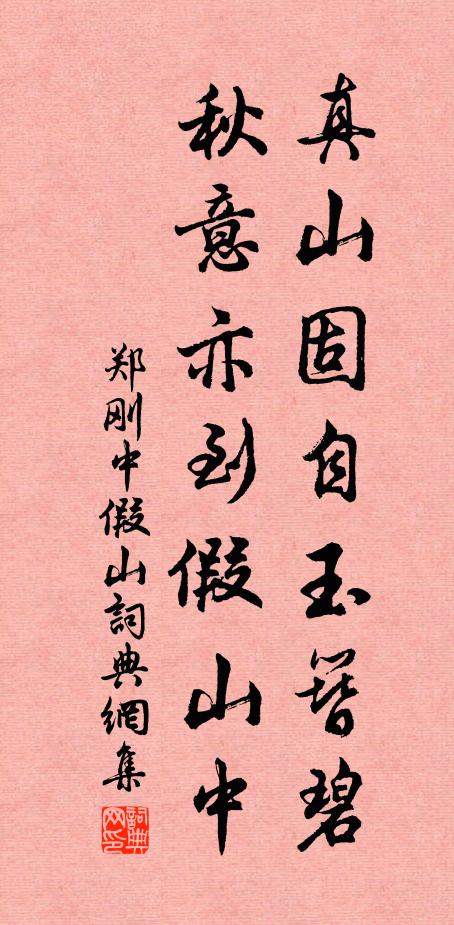 真山固自玉簪碧
秋意亦到假山中
郑刚中假山詞典網集
詞典网印